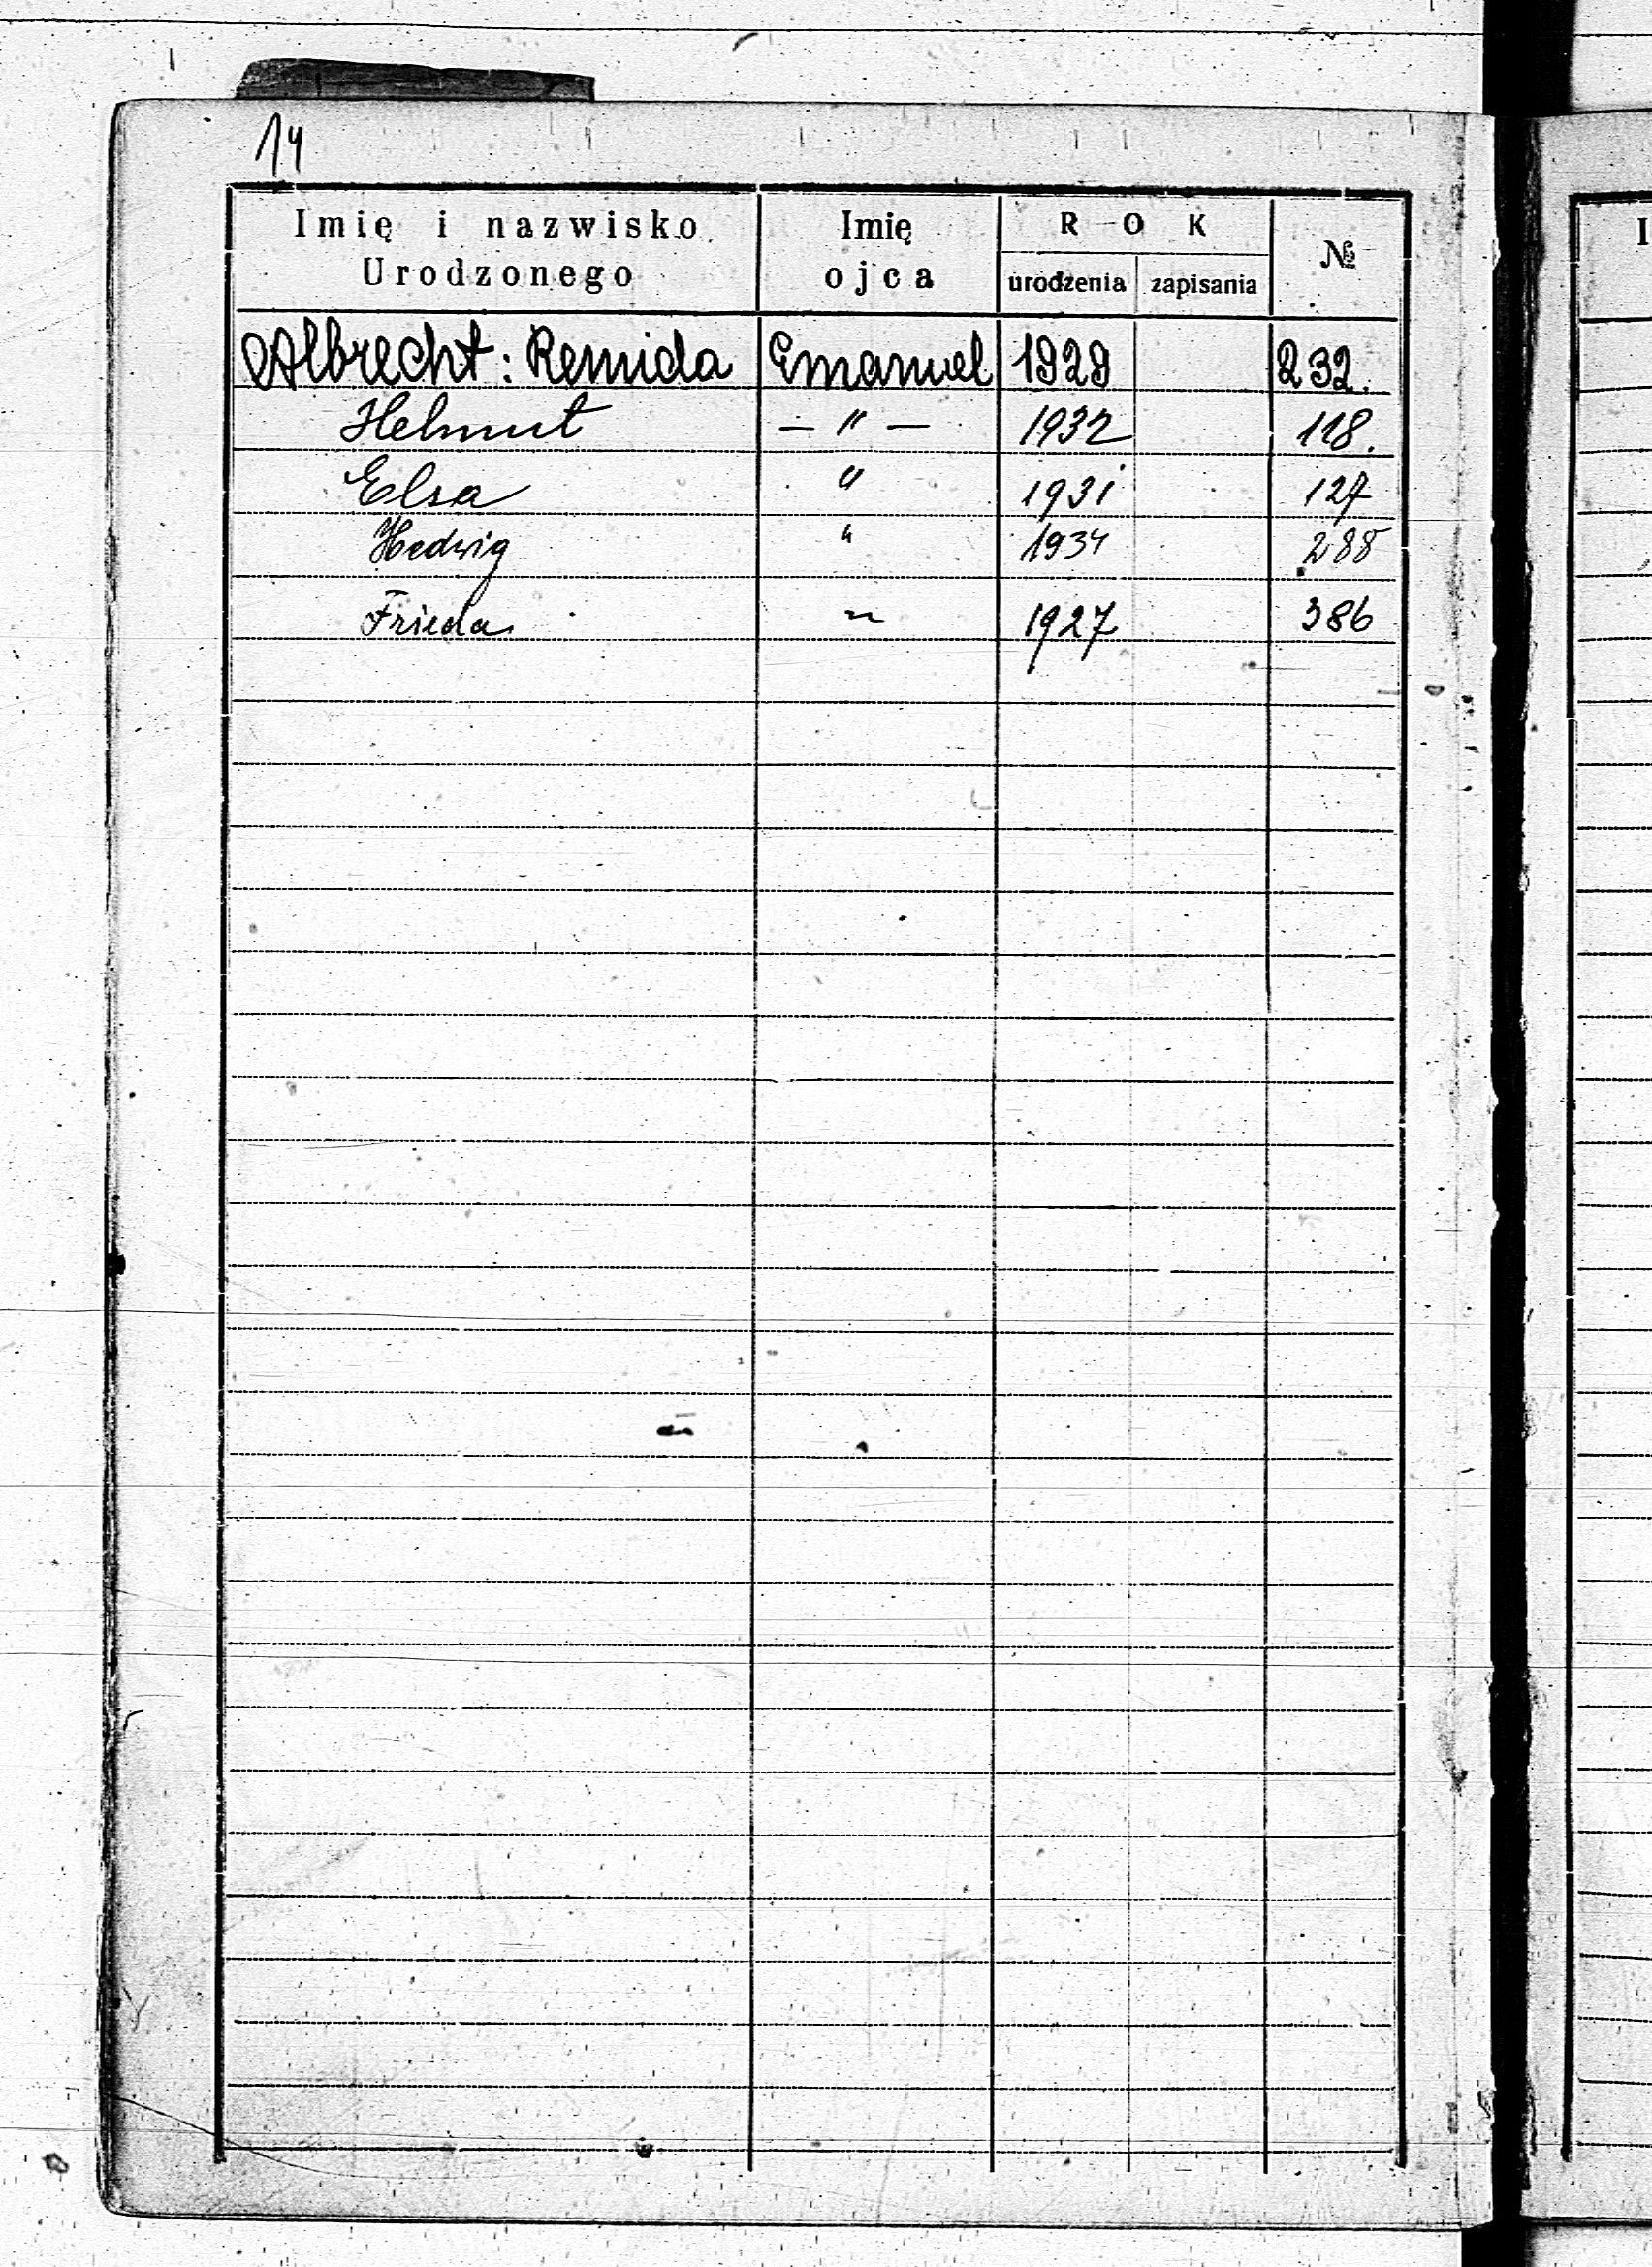 14
Imię i nazwisko Urodzonego Imię ojca ROK urodzenia zapisania №
Albrecht: Remida Emanuel 1929 232.
Helmut — " — 1932 118.
Elsa " 1931 127
Hedwig " 1934 288
Frieda " 1927 386
I